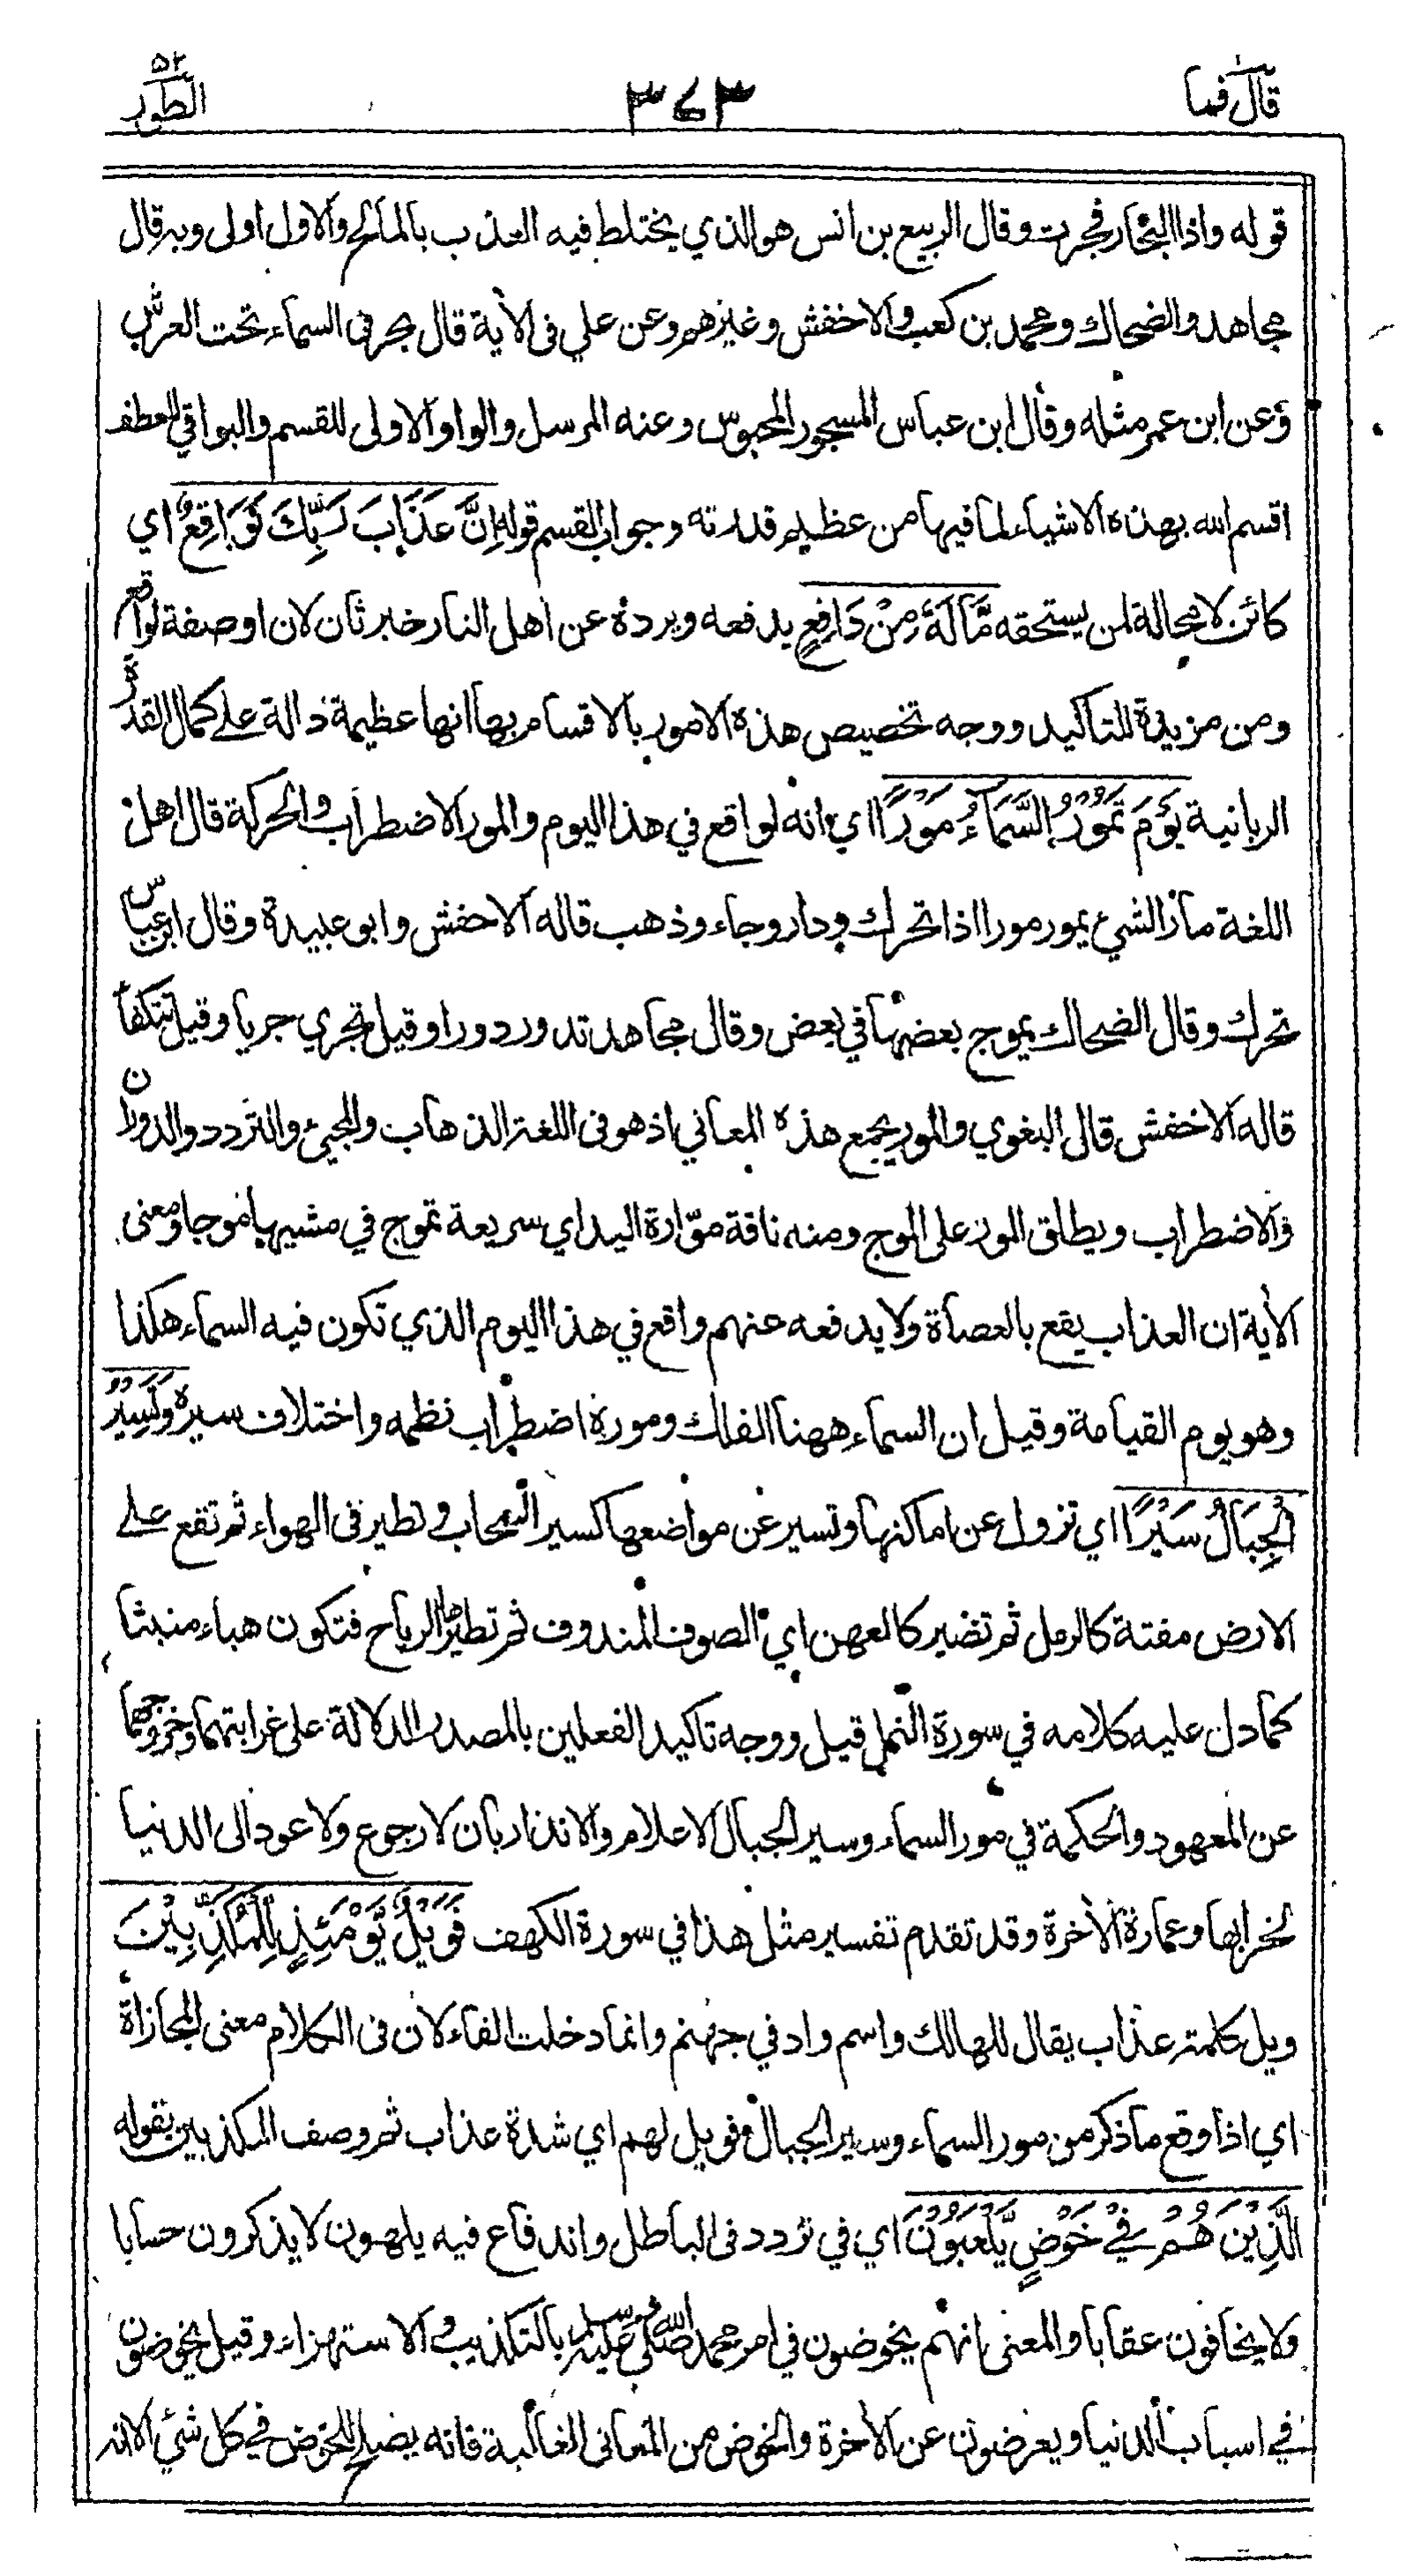 قال فما
٣٧٣
الطور ٥٢
قوله واذا البحار فجرت وقال الربيع بن انس هو الذي يختلط فيه العذب بالمالح والاول اولى وبه قال
مجاهد والضحاك ومحمد بن كعب والاخفش وغيرهم وعن علي فى الأية قال بحر فى السماء تحت العرش
وعن ابن عمر مثله وقال ابن عباس المسجور المحبوس وعنه المرسل والواو الاولى للقسم والبواقي للعطف
اقسم الله بهذه الاشياء لما فيها من عظيم قدرته وجواب القسم قوله اِنَّ عَذَابَ رَبِّكَ لَوَاقِعٌ اي
كائن لا محالة لمن يستحقه مَّا لَهٗ مِنْ دَافِعٍ يدفعه ويرده عن اهل النار خبر ثان لان او صفة لواقع
ومن مزيدة للتاكيد ووجه تخصيص هذه الامور بالاقسام بها انها عظيمة دالة على كمال القدرة
الربانية يَوْمَ تَمُوْرُ السَّمَآءُ مَوْرًا اي انه لواقع في هذا اليوم والمور الاضطراب والحركة قال اهل
اللغة مار الشيء يمور مورا اذا تحرك ودار وجاء وذهب قاله الاخفش وابو عبيدة وقال ابن عباس
تحرك وقال الضحاك يموج بعضها في بعض وقال مجاهد تدور دورا وقيل تجري جريا وقيل تتكفأ
قاله الاخفش قال البغوي والمور يجمع هذه المعاني اذ هو فى اللغة الذهاب والمجيء والتردد والدوران
والاضطراب ويطلق المور على الموج ومنه ناقة موّارة اليد اي سريعة تموج في مشيها موجا ومعنى
الأية ان العذاب يقع بالعصاة ولا يدفعه عنهم واقع في هذا اليوم الذي تكون فيه السماء هكذا
وهو يوم القيامة وقيل ان السماء ههنا الفلك وموره اضطراب نظمه واختلاف سيره وَّتَسِيْرُ
الْجِبَالُ سَيْرًا اي تزول عن اماكنها وتسير عن مواضعها كسير السحاب وتطير فى الهواء ثم تقع على
الارض مفتة كالرمل ثم تصير كالعهن اي الصوف المندوف ثم تطيرها الرياح فتكون هباء منبثا
كما دل عليه كلامه في سورة النمل قيل ووجه تاكيد الفعلين بالمصدر الدلالة على غرابتهما وخروجهما
عن المعهود والحكمة في مور السماء وسير الجبال الاعلام والانذار بان لا رجوع ولا عود الى الدنيا
لخرابها وعمارة الأخرة وقد تقدم تفسير مثل هذا في سورة الكهف فَوَيْلٌ يَّوْمَئِذٍ لِّلْمُكَذِّبِيْنَ
ويل كلمة عذاب يقال للهالك واسم واد في جهنم وانما دخلت الفاء لان فى الكلام معنى المجازاة
اي اذا وقع ما ذكر من مور السماء وسير الجبال فويل لهم اي شدة عذاب ثم وصف المكذبين بقوله
الَّذِيْنَ هُمْ فِيْ خَوْضٍ يَّلْعَبُوْنَ اي في تردد فى الباطل واندفاع فيه يلهون لا يذكرون حسابا
ولا يخافون عقابا والمعنى انهم يخوضون في امر محمد صلى الله عليه وسلم بالتكذيب والاستهزاء وقيل يخوضون
في اسباب الدنيا ويعرضون عن الأخرة والخوض من المعانى الغالبة فانه يصلح للخوض في كل شيء الا انه